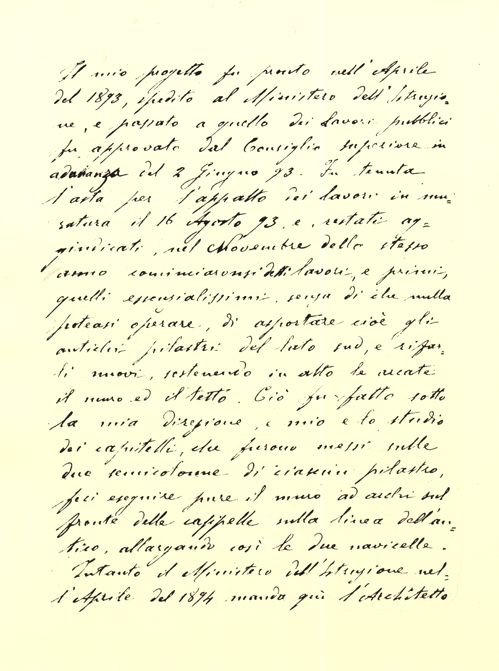 Il mio progetto fu pronto nell'Aprile
del 1893, spedito al Ministero dell'Istruzio=
ne, e passato a quello dei Lavori pubblici
fu approvato dal Consiglio superiore in
adunanza del 2 Giugno 93. Fu tenuta
l'asta per l'appalto dei lavori in mu=
ratura il 16 Agosto 93, e, restati ag=
giudicati, nel Novembre dello stesso
anno cominciaronsi detti lavori, e primi,
quelli essenzialissimi, senza di che nulla
poteasi operare, di asportare cioè gli
antichi pilastri del lato sud, e rifar=
li nuovi, sostenendo in alto le arcate
il muro ed il tetto. Ciò fu fatto sotto
la mia direzione, e mio e lo studio
dei capitelli, che furono messi sulle
due semicolonne di ciascun pilastro,
feci eseguire pure il muro ad archi sul
fronte delle cappelle sulla linea dell'an=
tico, allargando così le due navicelle.
Intanto il Ministero dell'Istruzione nel=
l'Aprile del 1894 manda quì l'Architetto